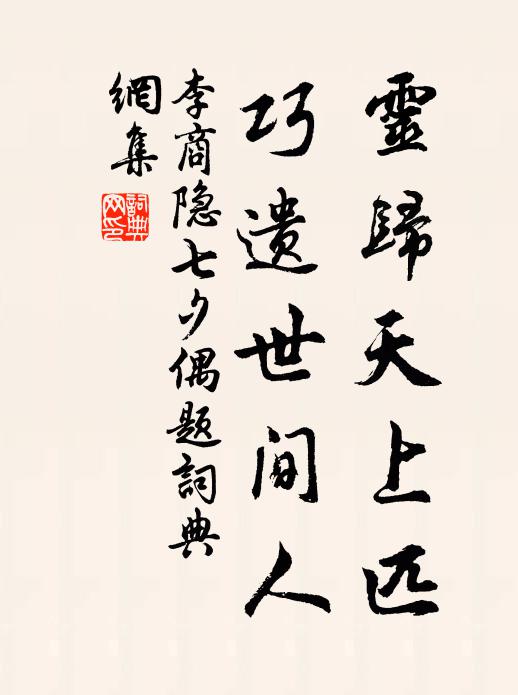 靈歸天上匹
巧遺世间人
李商隐七夕偶题詞典
網集
詞典
网印